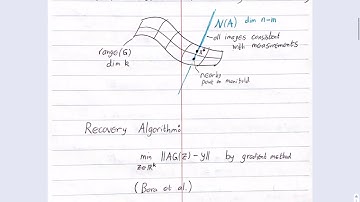 N(A) dim n-m
all images consistent
with measurements
range(G)
dim k
nearby
point on manifold
Recovery Algorithm:
min ||AG(z) - y|| by gradient method
z∈ℝᵏ
(Bora et al.)